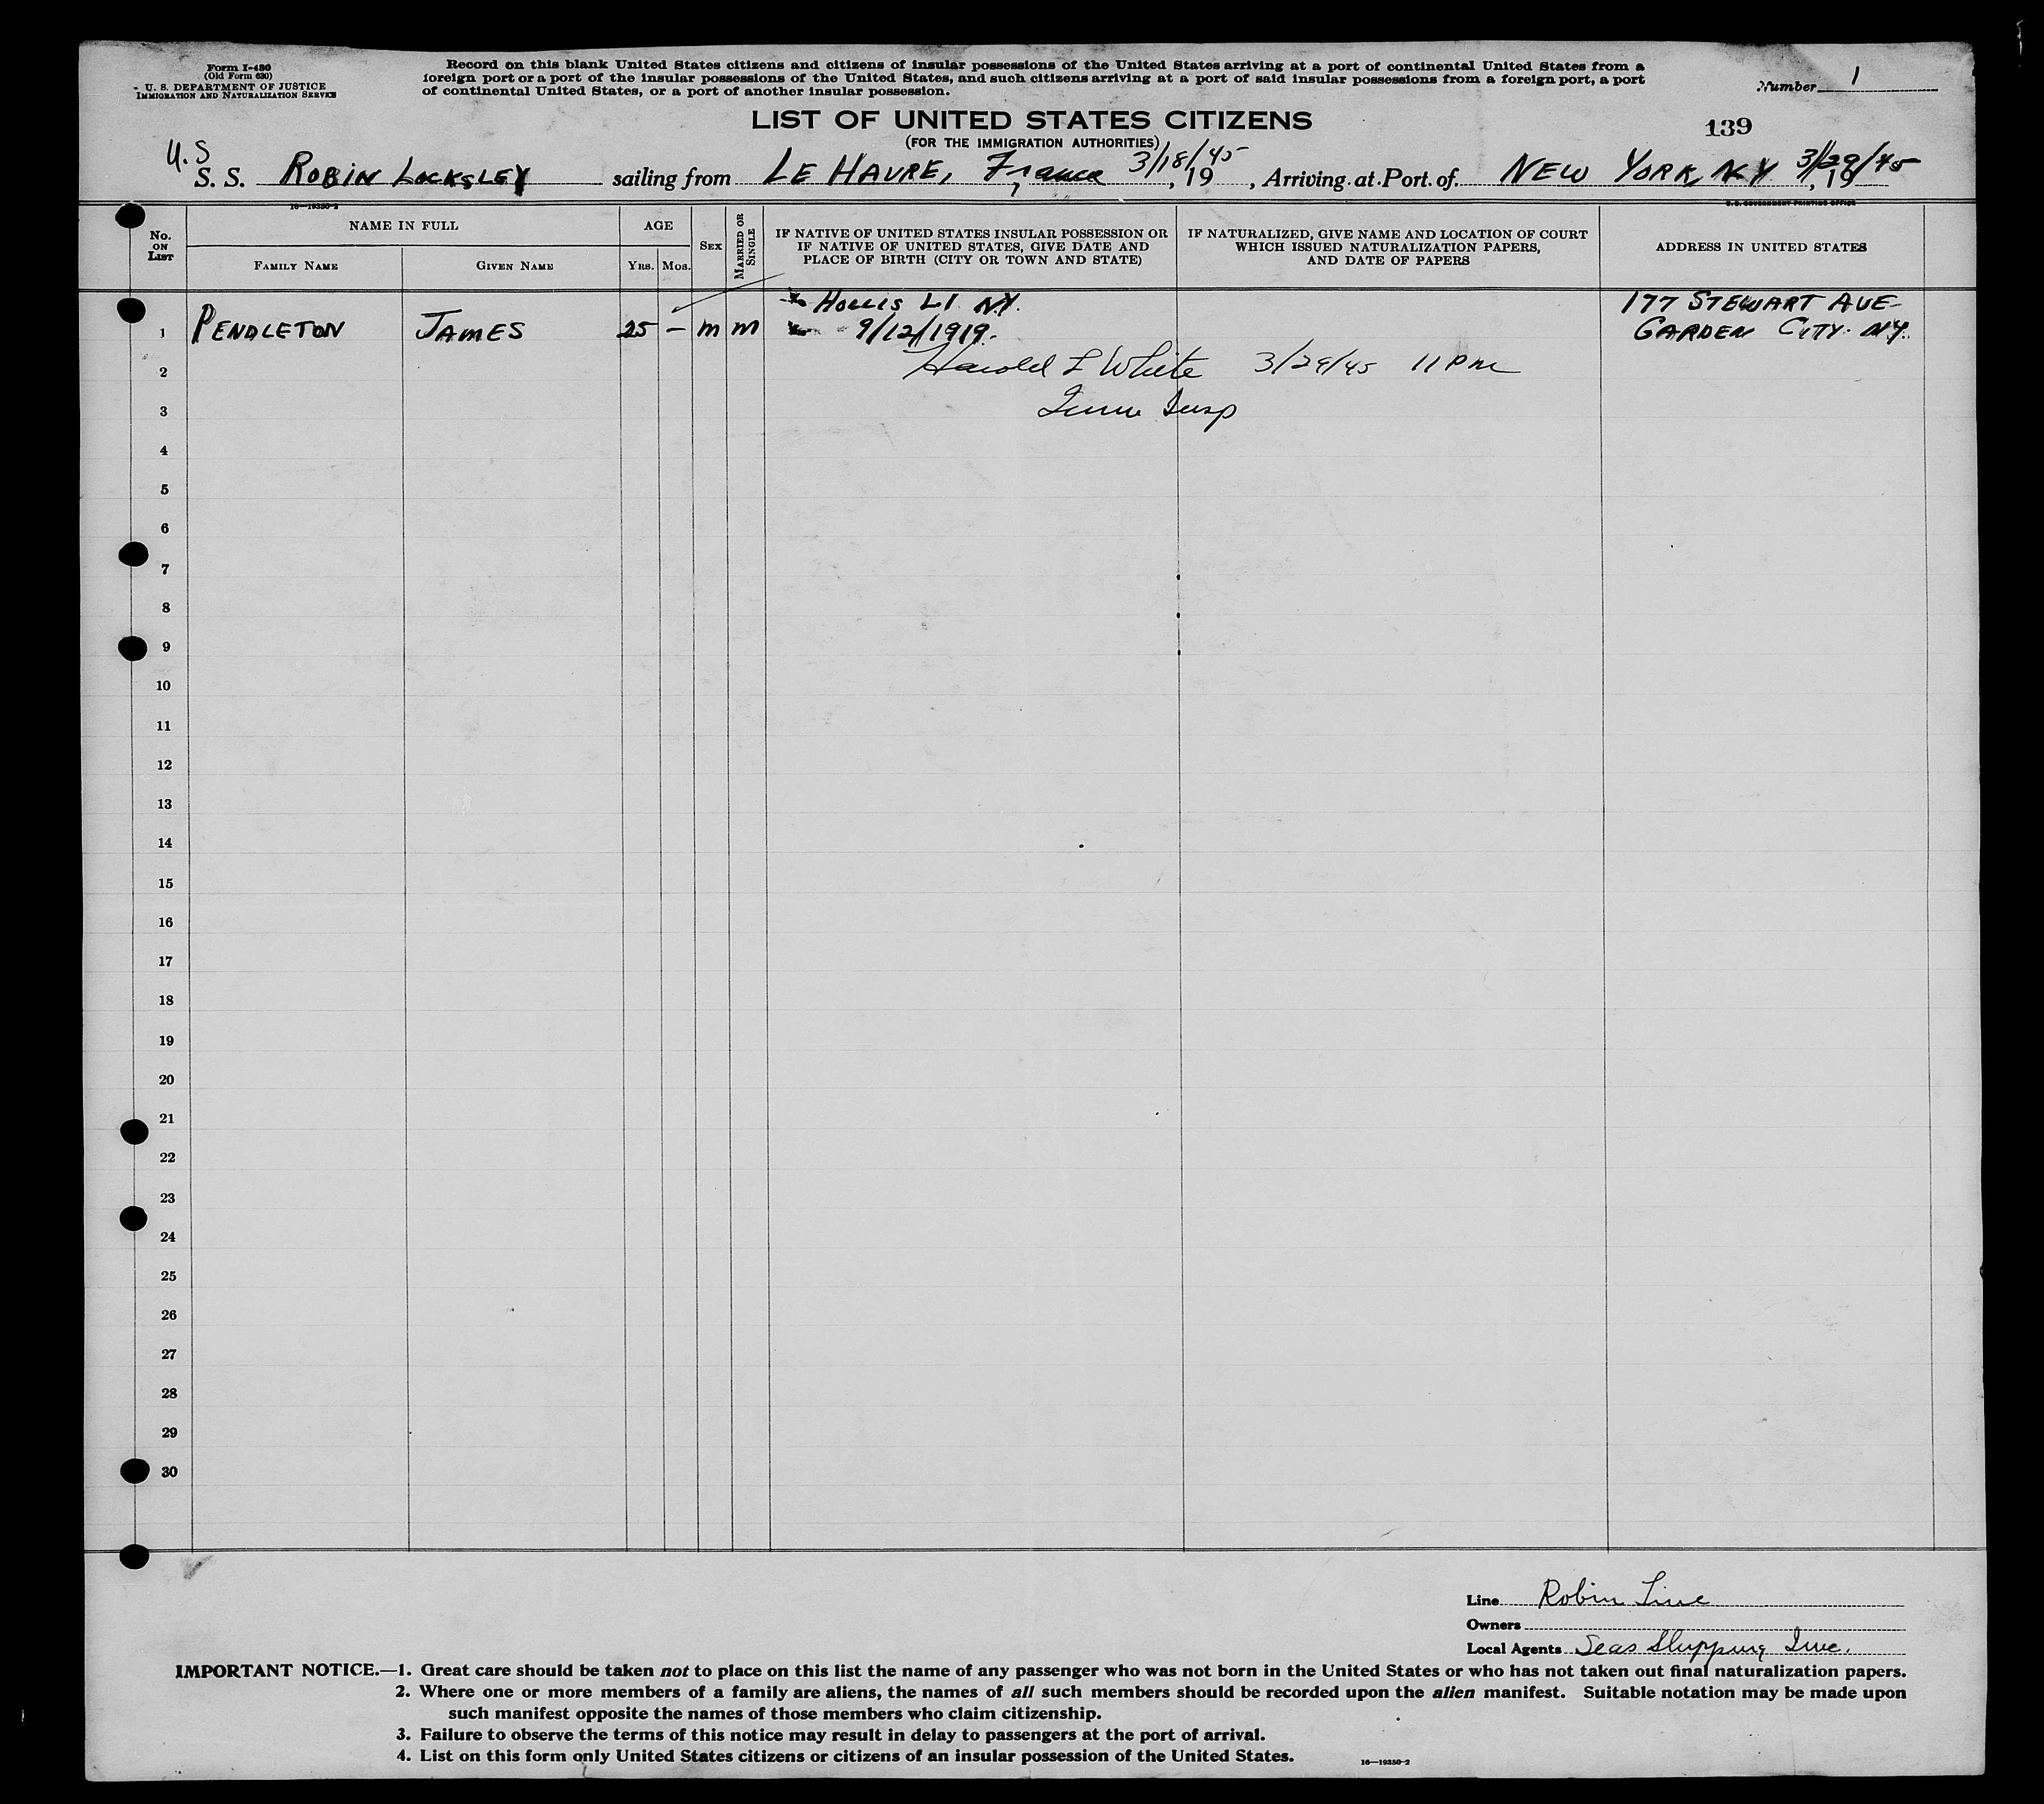 Form I-430
(Old Form 630)
U. S. DEPARTMENT OF JUSTICE
IMMIGRATION AND NATURALIZATION SERVICE
Record on this blank United States citizens and citizens of insular possessions of the United States arriving at a port of continental United States from a
foreign port or a port of the insular possessions of the United States, and such citizens arriving at a port of said insular possessions from a foreign port, a port
of continental United States, or a port of another insular possession.
Number 1
LIST OF UNITED STATES CITIZENS
(FOR THE IMMIGRATION AUTHORITIES)
139
U. S
S. S. ROBIN LOCKSLEY sailing from LE HAVRE, France 3/18/45, 19 , Arriving at Port of NEW YORK, N.Y. 3/29/45, 19
16—19350-2
U. S. GOVERNMENT PRINTING OFFICE
No. ON LIST
NAME IN FULL
FAMILY NAME
GIVEN NAME
AGE
YRS. MOS.
SEX
MARRIED OR SINGLE
IF NATIVE OF UNITED STATES INSULAR POSSESSION OR
IF NATIVE OF UNITED STATES, GIVE DATE AND
PLACE OF BIRTH (CITY OR TOWN AND STATE)
IF NATURALIZED, GIVE NAME AND LOCATION OF COURT
WHICH ISSUED NATURALIZATION PAPERS,
AND DATE OF PAPERS
ADDRESS IN UNITED STATES
HOLLIS L I. N.Y. 177 STEWART AVE
1 PENDLETON JAMES 25 – M M 9/12/1919. GARDEN CITY. N.Y.
2 Harold L White 3/29/45 11 PM
3 Imm Insp
4
5
6
7
8
9
10
11
12
13
14
15
16
17
18
19
20
21
22
23
24
25
26
27
28
29
30
Line Robin Line
Owners
Local Agents Seas Shipping Inc.
IMPORTANT NOTICE.—1. Great care should be taken not to place on this list the name of any passenger who was not born in the United States or who has not taken out final naturalization papers.
2. Where one or more members of a family are aliens, the names of all such members should be recorded upon the alien manifest. Suitable notation may be made upon
such manifest opposite the names of those members who claim citizenship.
3. Failure to observe the terms of this notice may result in delay to passengers at the port of arrival.
4. List on this form only United States citizens or citizens of an insular possession of the United States.
16—19350-2